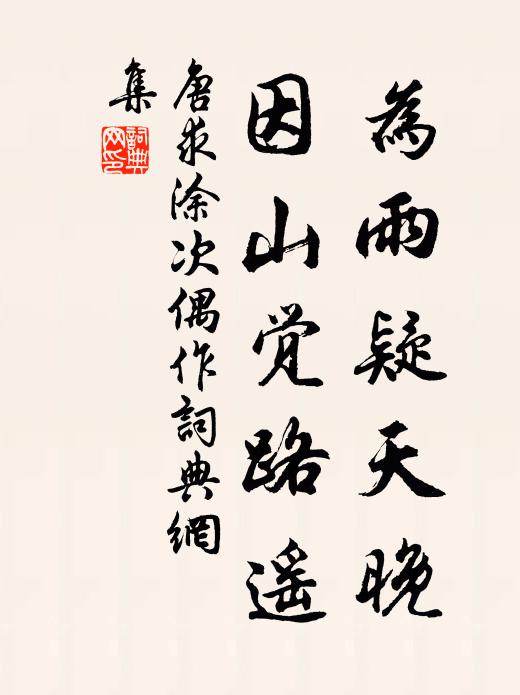 為雨疑天晚
因山覚路遥
唐求涂次偶作詞典網
集
詞典網印